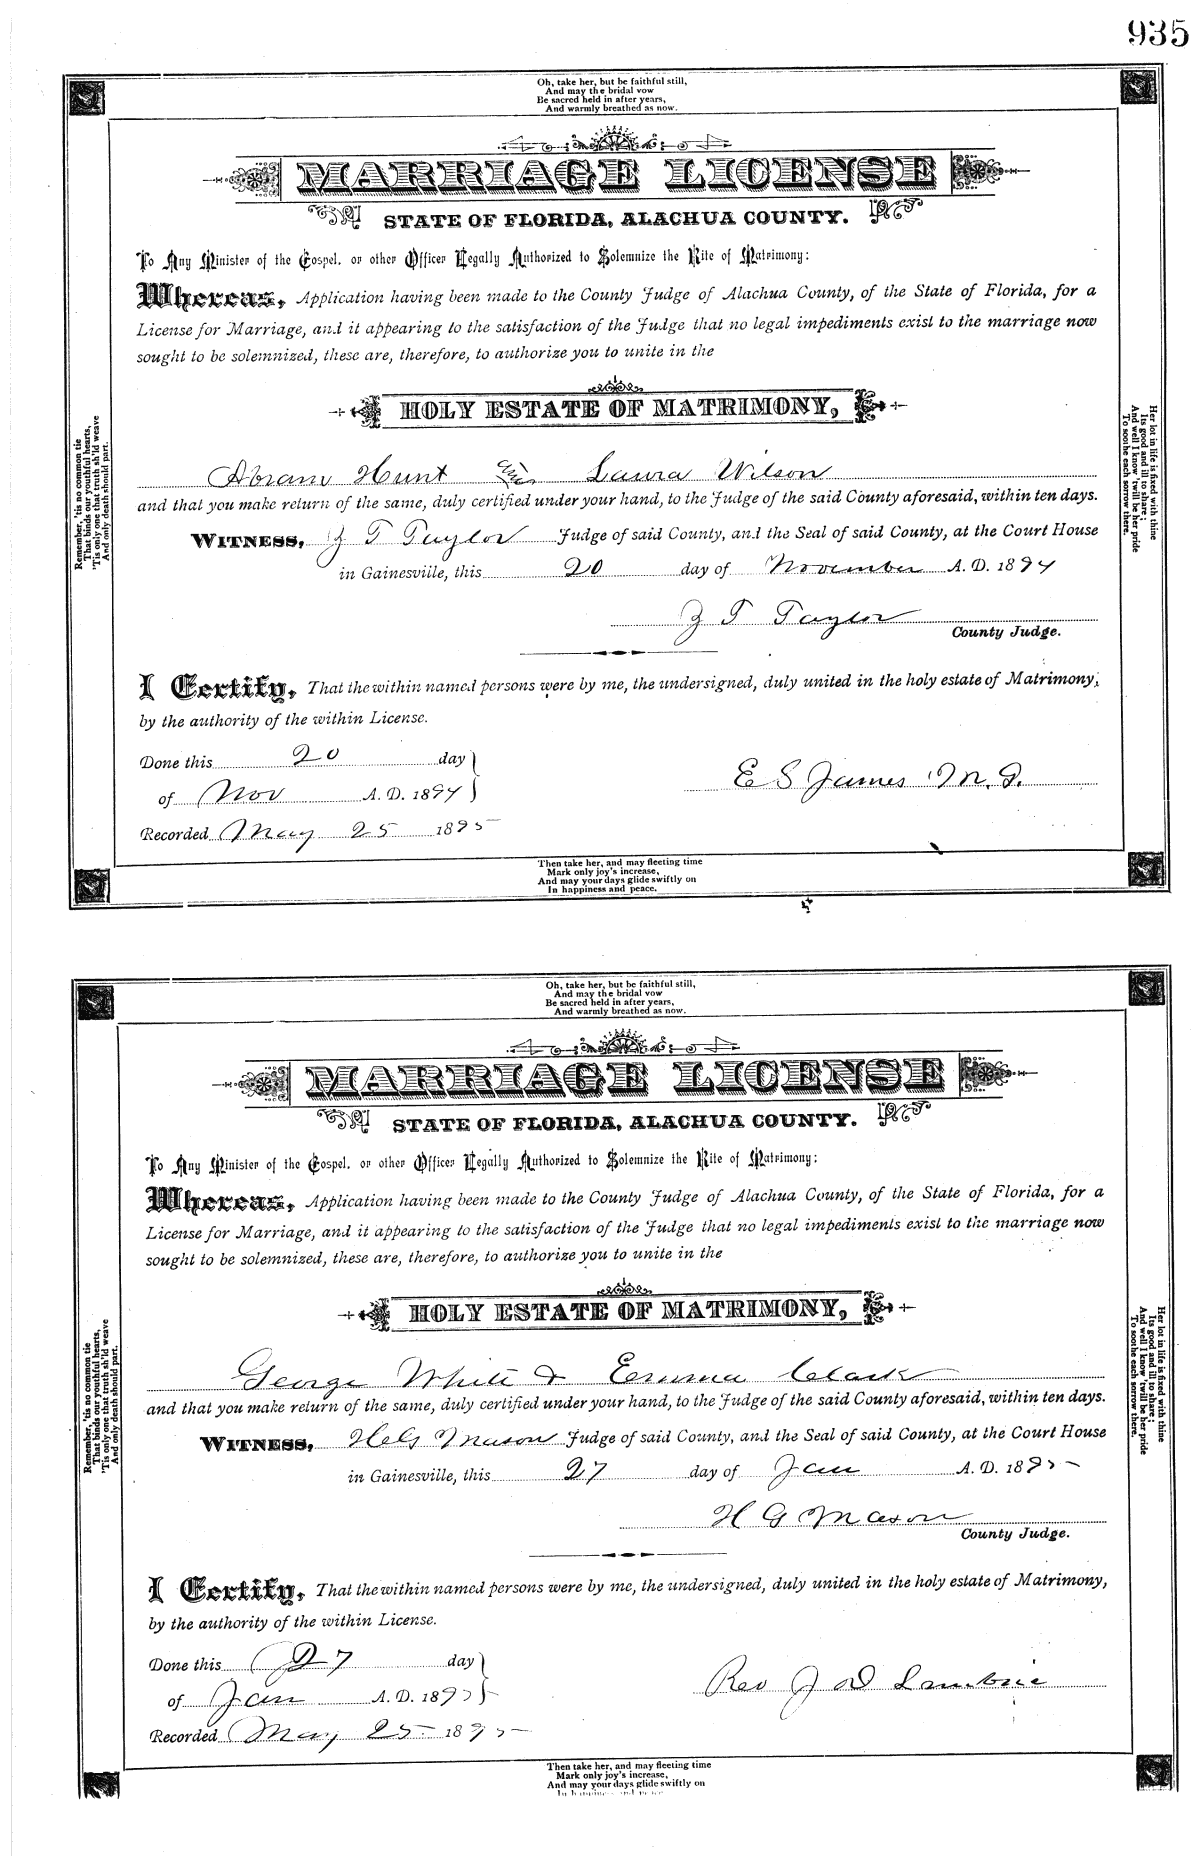 935
Oh, take her, but be faithful still,
And may the bridal vow
Be sacred held in after years,
And warmly breathed as now.
MARRIAGE LICENSE
STATE OF FLORIDA, ALACHUA COUNTY.
To Any Minister of the Gospel, or other Officer Legally Authorized to Solemnize the Rite of Matrimony:
Whereas, Application having been made to the County Judge of Alachua County, of the State of Florida, for a
License for Marriage, and it appearing to the satisfaction of the Judge that no legal impediments exist to the marriage now
sought to be solemnized, these are, therefore, to authorize you to unite in the
HOLY ESTATE OF MATRIMONY,
Abram Hunt and Laura Wilson
and that you make return of the same, duly certified under your hand, to the Judge of the said County aforesaid, within ten days.
WITNESS, Z T Taylor Judge of said County, and the Seal of said County, at the Court House
in Gainesville, this 20 day of November A. D. 1894
Z T Taylor
County Judge.
I Certify, That the within named persons were by me, the undersigned, duly united in the holy estate of Matrimony,
by the authority of the within License.
Done this 20 day
of Nov A. D. 1894
E S James M. G.
Recorded May 25 1895
Remember, 'tis no common tie
That binds our youthful hearts,
'Tis only one that truth sh'ld weave
And only death should part.
Her lot in life is fixed with thine
Its good and ill to share;
And well I know 'twill be her pride
To soothe each sorrow there.
Then take her, and may fleeting time
Mark only joy's increase,
And may your days glide swiftly on
In happiness and peace.
Oh, take her, but be faithful still,
And may the bridal vow
Be sacred held in after years,
And warmly breathed as now.
MARRIAGE LICENSE
STATE OF FLORIDA, ALACHUA COUNTY.
To Any Minister of the Gospel, or other Officer Legally Authorized to Solemnize the Rite of Matrimony:
Whereas, Application having been made to the County Judge of Alachua County, of the State of Florida, for a
License for Marriage, and it appearing to the satisfaction of the Judge that no legal impediments exist to the marriage now
sought to be solemnized, these are, therefore, to authorize you to unite in the
HOLY ESTATE OF MATRIMONY,
George White & Emma Clark
and that you make return of the same, duly certified under your hand, to the Judge of the said County aforesaid, within ten days.
WITNESS, H G Mason Judge of said County, and the Seal of said County, at the Court House
in Gainesville, this 27 day of Jan A. D. 1895
H G Mason
County Judge.
I Certify, That the within named persons were by me, the undersigned, duly united in the holy estate of Matrimony,
by the authority of the within License.
Done this 27 day
of Jan A. D. 1895
Rev J
Recorded May 25 1895
Remember, 'tis no common tie
That binds our youthful hearts,
'Tis only one that truth sh'ld weave
And only death should part.
Her lot in life is fixed with thine
Its good and ill to share;
And well I know 'twill be her pride
To soothe each sorrow there.
Then take her, and may fleeting time
Mark only joy's increase,
And may your days glide swiftly on
In happiness and peace